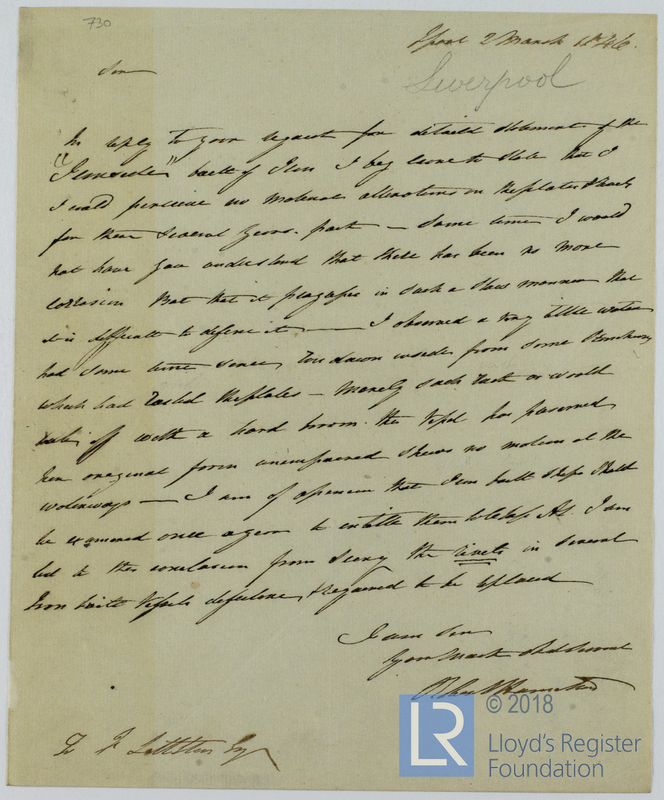 730
Lpool 2 March 1846.
Liverpool
Sir
In reply to your request for detaild statement of the
"Ironside" built of Iron I beg leave to state that I
I could perceive no material alterations in the plates &
for these several years past — same time I would
not have you understand that there has been no more
corrosion But that it progresses in such a slow manner that
it is difficult to define it — I observed a very little water
had some time since, run down inside from some
which had rusted the plates — merely such rust as would
off with a hard broom. the Vessel has preserved
her original form unimpaired shews no motion at the
waterways — I am of opinion that Iron built ships should
be examined once a year to entitle them to Class A1. I am
led to this conclusion from seeing the rivets in several
Iron built Vessels defective, & required to be replaced
I am Sir
Your Most Obd Servant
To
Esq
LR
© 2018
Lloyd's Register
Foundation